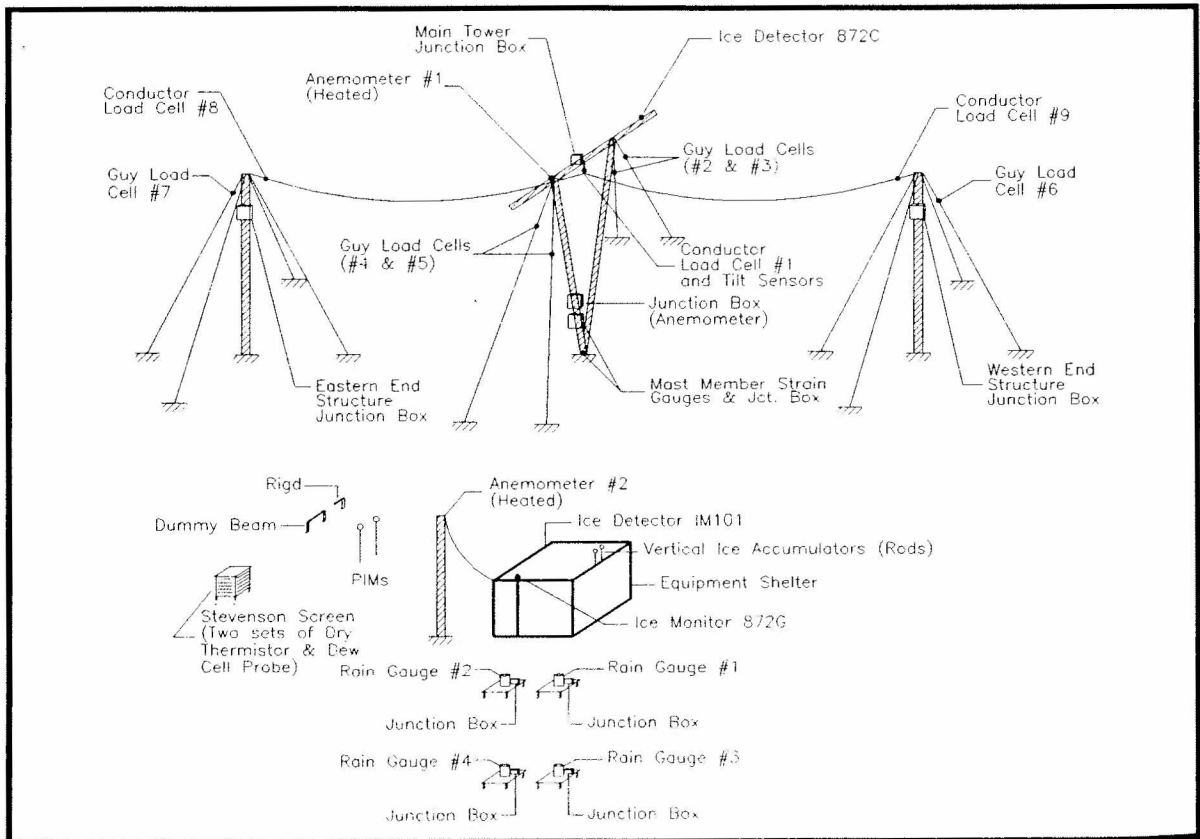 Main Tower
Junction Box
Ice Detector 872C
Anemometer #1
(Heated)
Conductor
Load Cell #8
Conductor
Load Cell #9
Guy Load
Cell #7
Guy Load Cells
(#2 & #3)
Guy Load
Cell #6
Guy Load Cells
(#4 & #5)
Conductor
Load Cell #1
and Tilt Sensors
Junction Box
(Anemometer)
Eastern End
Structure
Junction Box
Mast Member Strain
Gauges & Jct. Box
Western End
Structure
Junction Box
Rigd
Dummy Beam
PIMs
Anemometer #2
(Heated)
Ice Detector IM101
Vertical Ice Accumulators (Rods)
Equipment Shelter
Ice Monitor 872G
Stevenson Screen
(Two sets of Dry
Thermistor & Dew
Cell Probe)
Rain Gauge #2
Rain Gauge #1
Junction Box
Junction Box
Rain Gauge #4
Rain Gauge #3
Junction Box
Junction Box